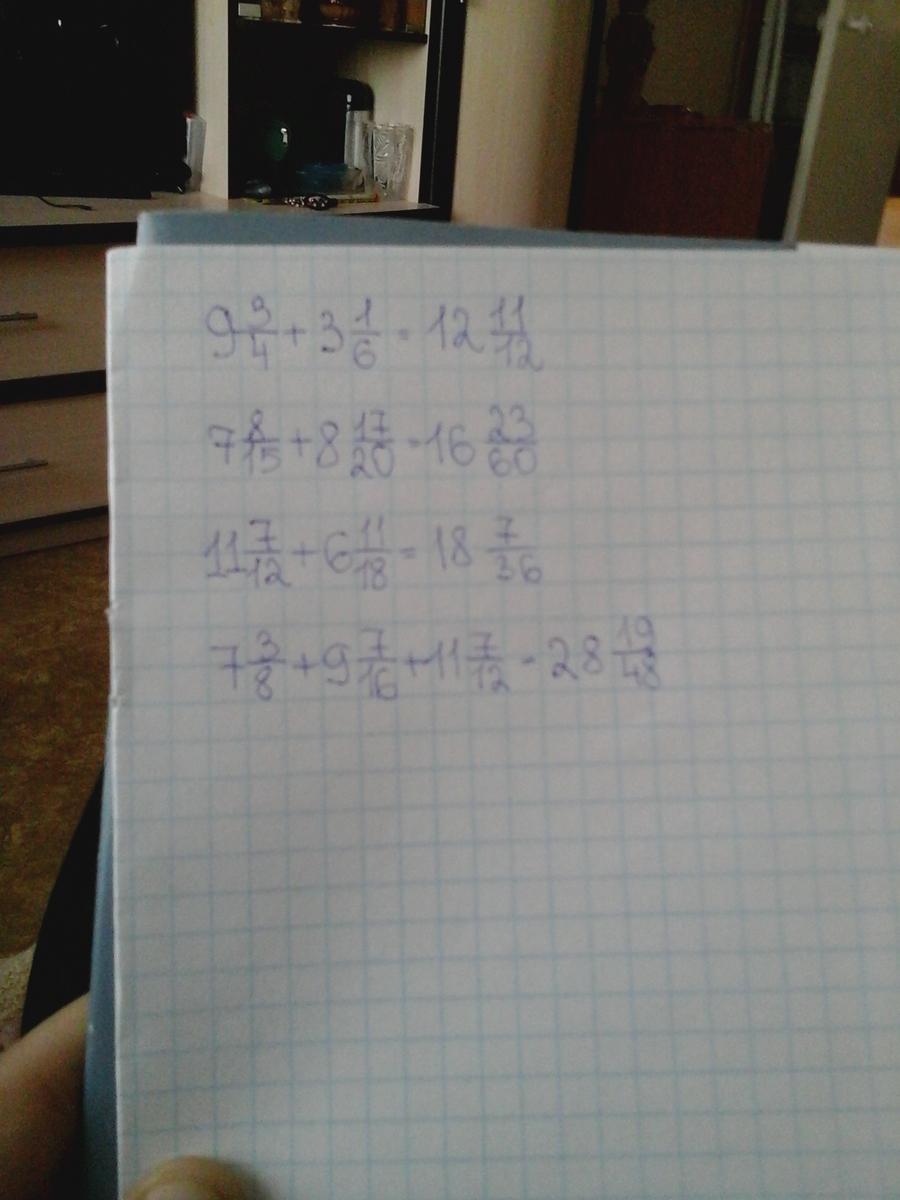 9 3/4 + 3 1/6 = 12 11/12
7 8/15 + 8 17/20 = 16 23/60
11 7/12 + 6 11/18 = 18 7/36
7 3/8 + 9 7/16 + 11 7/12 = 28 19/48